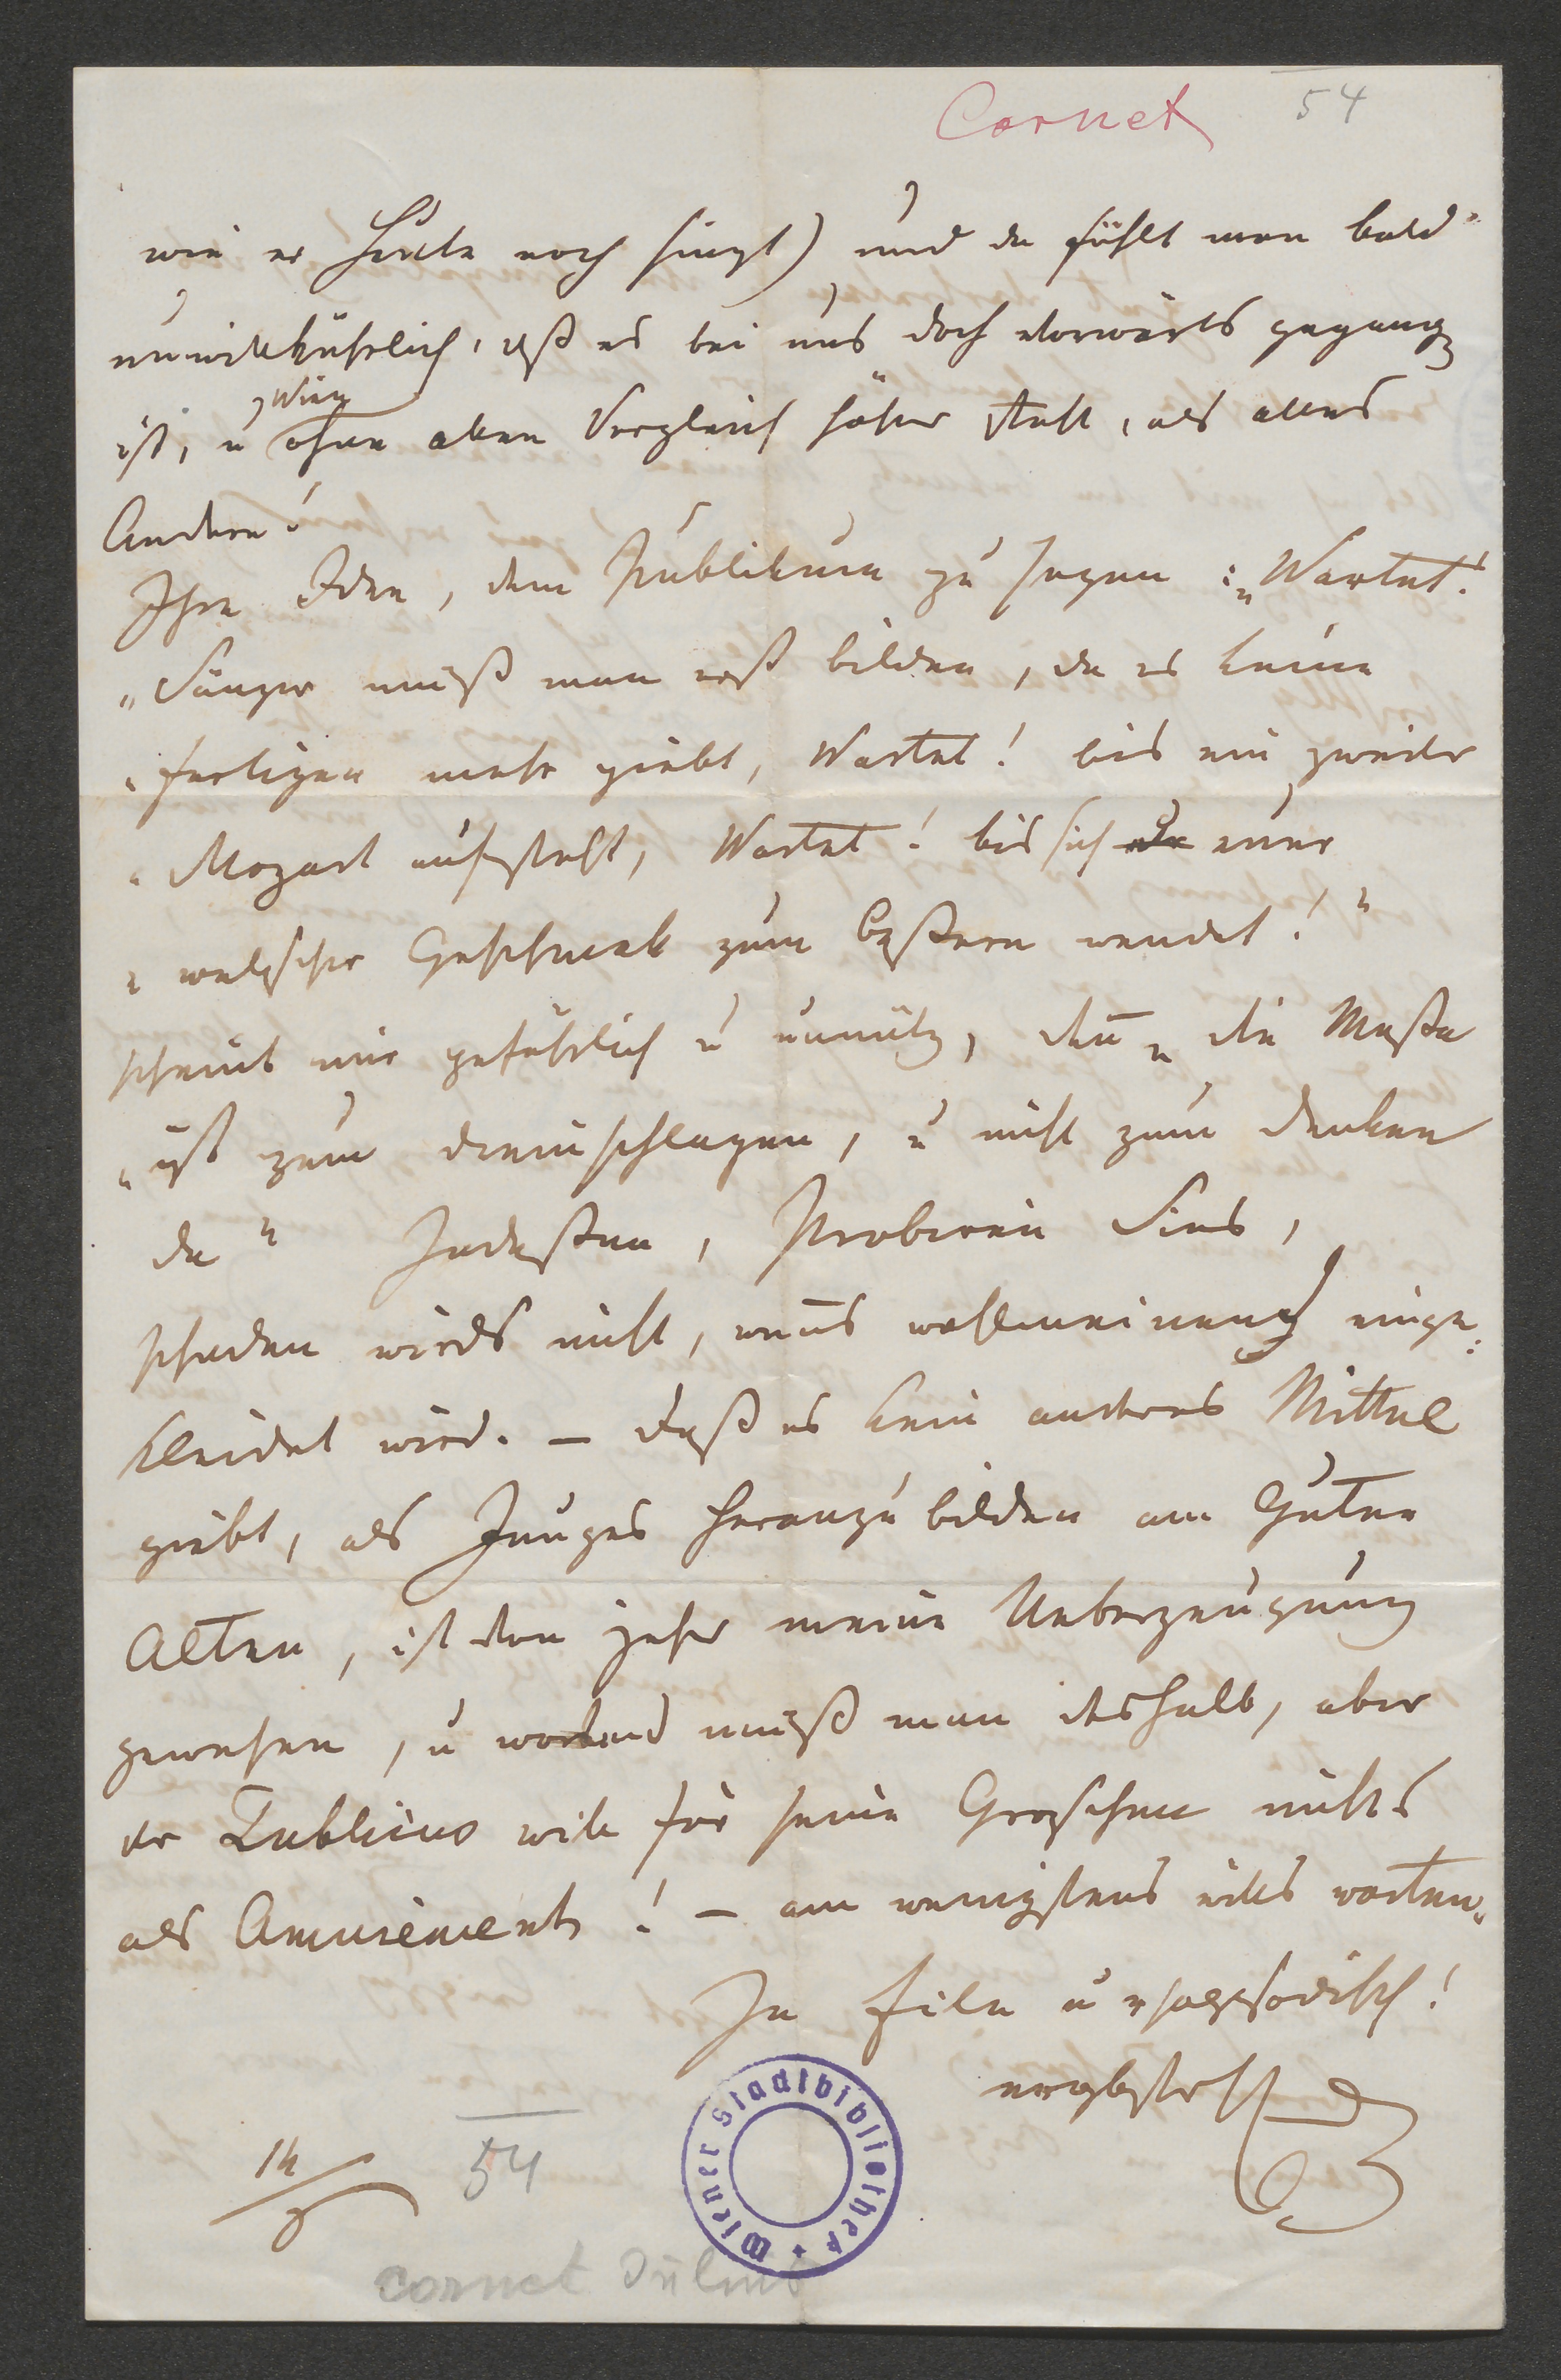 Cornet 54
wie er heute noch singt) und da fühlt man bald
unwillkührlich, daß es bei uns doch vorwärts gegangen
ist, u Wien ohne allen Vergleich höher steht, als alles
Andere!
Ihre Idee, dem Publikum zu sagen: „Wartet!
„Sänger muß man erst bilden, da es keine
„fertigen mehr giebt, Wartet! bis ein zweiter
„Mozart aufersteht, Wartet! bis sich der euer
„welscher Geschmack zum beßern wendet!"
scheint mir gefährlich u unnütz, deñ „die Maße
„ist zum dreinschlagen, u nicht zum denken
da" Indeßen, Probiren Sies,
schaden wirds nicht, weñs wohlmeinend einge:
kleidet wird. – Daß es kein anderes Mittel
giebt, als Junges heranzubilden am Guten
Alten, ist von jeher meine Ueberzeugung
gewesen, u warten muß man deshalb, aber
der Publicus will für seine Groschen nichts
als Amusement! – am wenigsten wills warten.
In Eile u rhapsodisch!
ergebenst
14/5
54
Wiener Stadtbibliothek
Cornet Julius